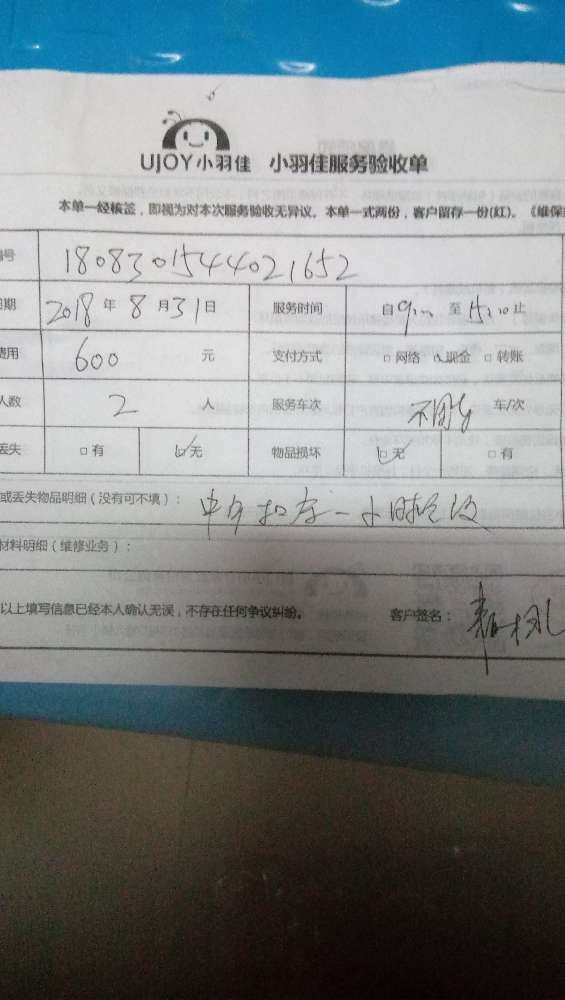 UJOY小羽佳 小羽佳服务验收单
本单一经核签，即视为对本次服务验收无异议。本单一式两份，客户留存一份(红)。《维保
编号 1808301544021652
日期 2018年8月31日 服务时间 自9:00至15:00止
费用 600元 支付方式 □网络 ☑现金 □转账
人数 2人 服务车次 车/次
丢失 □有 ☑无 物品损坏 ☑无 □有
或丢失物品明细（没有可不填）： 中午扣存一小时
材料明细（维修业务）：
以上填写信息已经本人确认无误，不存在任何争议纠纷。 客户签名：